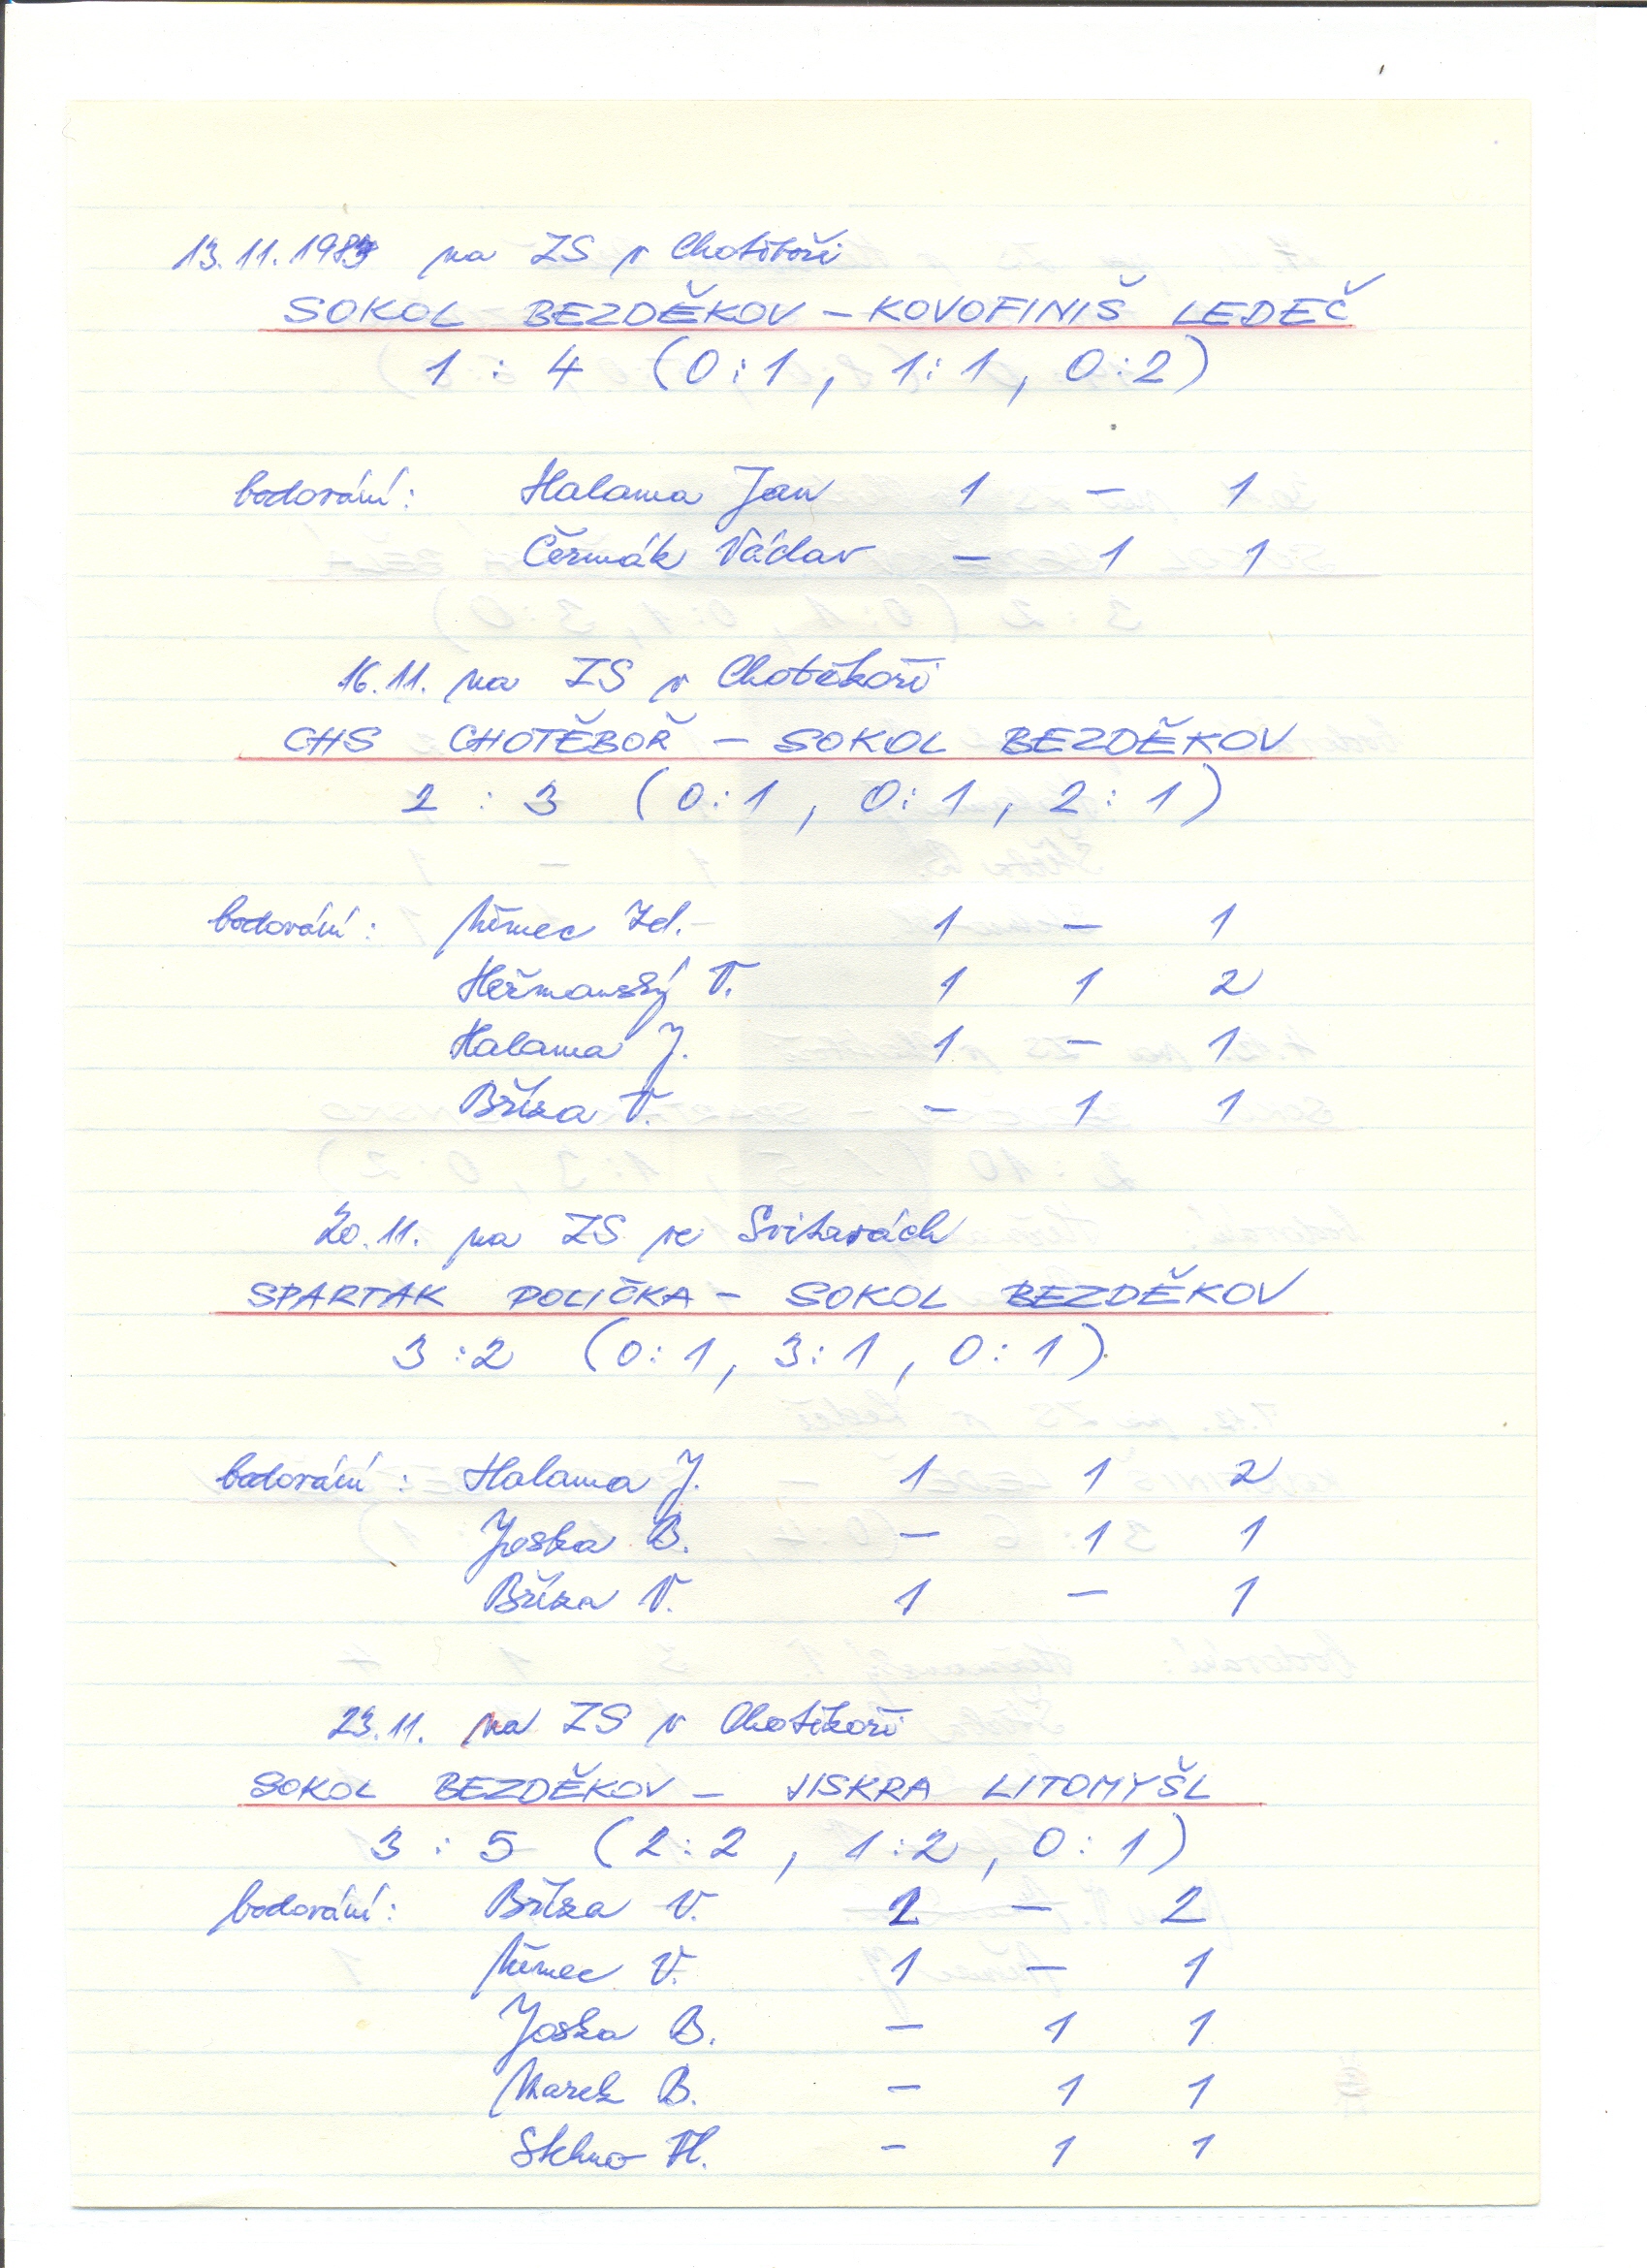 13.11.1983 na ZS v Chotěboři
SOKOL BEZDĚKOV – KOVOFINIŠ LEDEČ
1 : 4 (0:1, 1:1, 0:2)
bodování: Halama Jan 1 – 1
Čermák Václav – 1 1
16.11. na ZS v Chotěboři
CHS CHOTĚBOŘ – SOKOL BEZDĚKOV
2 : 3 (0:1, 0:1, 2:1)
bodování: Němec Zd. 1 – 1
Heřmanský V. 1 1 2
Halama J. 1 – 1
Bříza V. – 1 1
20.11. na ZS ve Svitavách
SPARTAK POLIČKA – SOKOL BEZDĚKOV
3 : 2 (0:1, 3:1, 0:1)
bodování: Halama J. 1 1 2
Joska B. – 1 1
Bříza V. 1 – 1
23.11. na ZS v Chotěboři
SOKOL BEZDĚKOV – JISKRA LITOMYŠL
3 : 5 (2:2, 1:2, 0:1)
bodování: Bříza V. 2 – 2
Němec V. 1 – 1
Joska B. – 1 1
Marek B. – 1 1
Stehno Vl. – 1 1